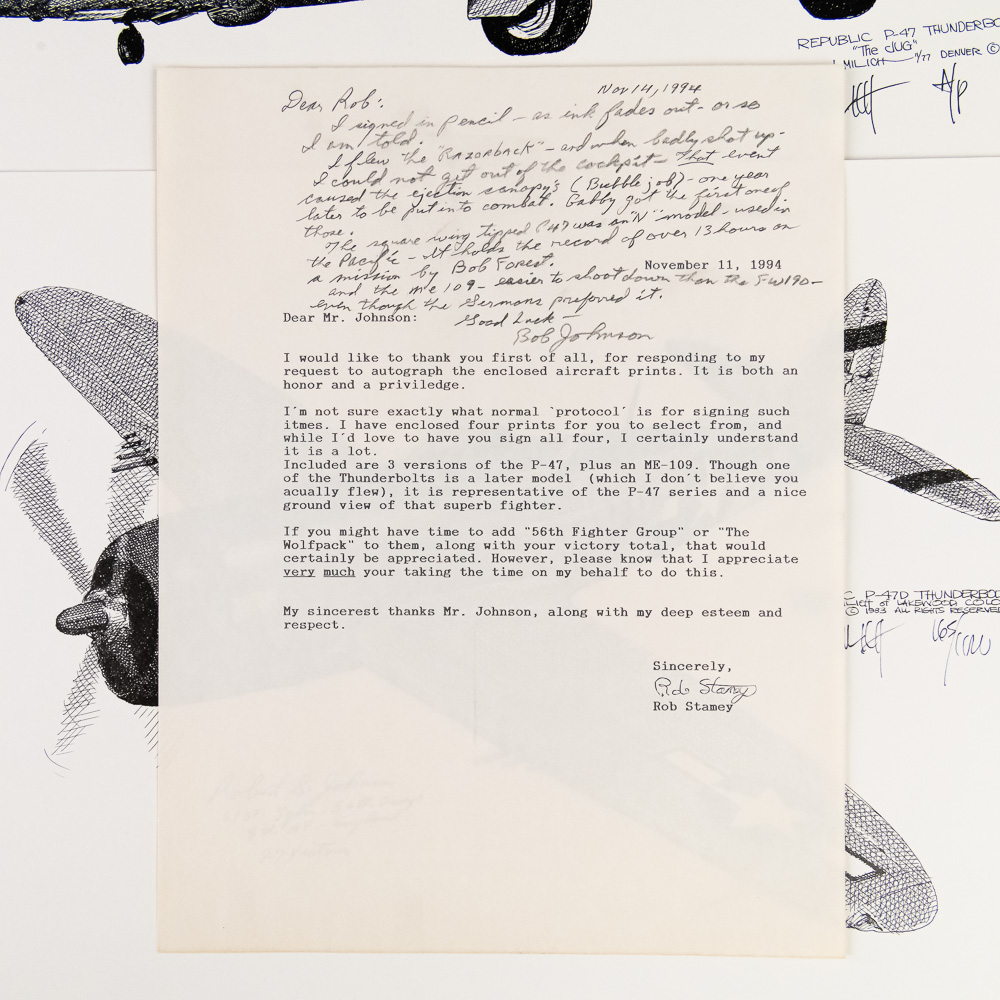 REPUBLIC P-47 THUNDERBO
"The JUG"
MILICH 9/77 DENVER ©
A/P
Nov 14, 1994
Dear Rob:
I signed in pencil - as ink fades out - or so
I am told.
I flew the "Razorback" - and when badly shot up -
I could not get out of the cockpit - That event
caused the ejection canopy's (Bubble job) - one year
later to be put into combat. Gabby got the first one of
those.
The square wing tipped P47 was an "N" model - used in
the Pacific - It holds the record of over 13 hours on
a mission by Bob Forest.
and the Me 109 - easier to shoot down than the FW190 -
even though the Germans preferred it.
Good Luck -
Bob Johnson
November 11, 1994
Dear Mr. Johnson:
I would like to thank you first of all, for responding to my
request to autograph the enclosed aircraft prints. It is both an
honor and a priviledge.
I´m not sure exactly what normal `protocol´ is for signing such
itmes. I have enclosed four prints for you to select from, and
while I´d love to have you sign all four, I certainly understand
it is a lot.
Included are 3 versions of the P-47, plus an ME-109. Though one
of the Thunderbolts is a later model (which I don´t believe you
acually flew), it is representative of the P-47 series and a nice
ground view of that superb fighter.
If you might have time to add "56th Fighter Group" or "The
Wolfpack" to them, along with your victory total, that would
certainly be appreciated. However, please know that I appreciate
very much your taking the time on my behalf to do this.
My sincerest thanks Mr. Johnson, along with my deep esteem and
respect.
Sincerely,
Rob Stamey
Rob Stamey
C P-47D THUNDERBO
LICH OF LAKEWOOD COLO
© 1983 ALL RIGHTS RESERVE
165/1000